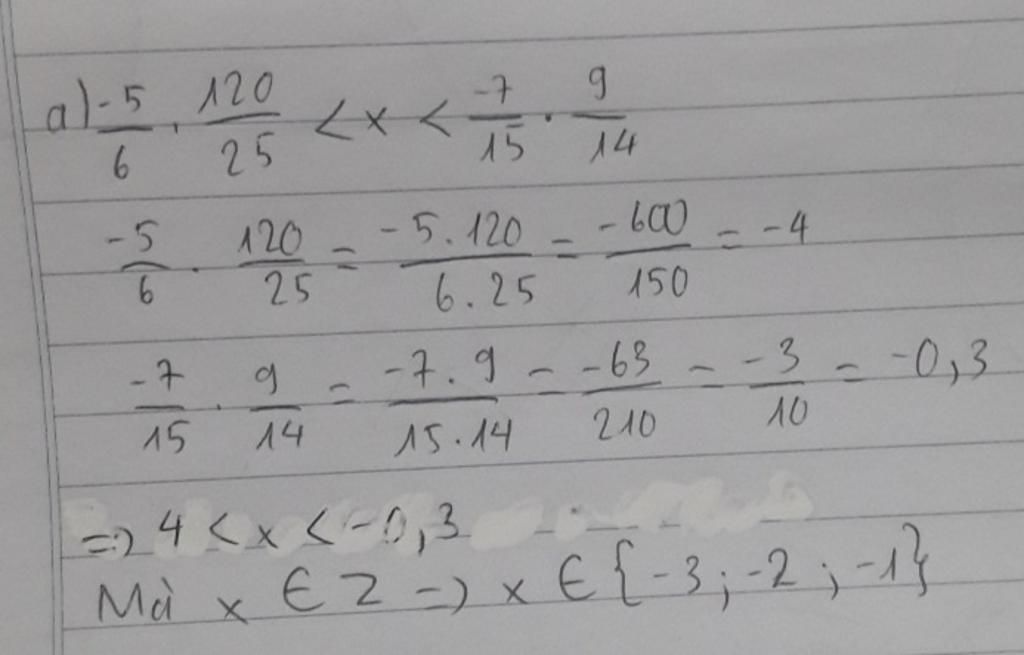 a) -5/6 . 120/25 < x < -7/15 . 9/14
-5/6 . 120/25 = -5.120/6.25 = -600/150 = -4
-7/15 . 9/14 = -7.9/15.14 = -63/210 = -3/10 = -0,3
=> 4 < x < -0,3
Mà x ∈ Z => x ∈ {-3; -2; -1}